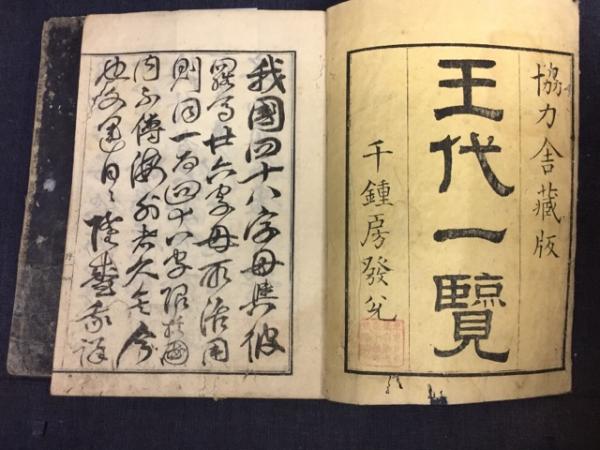 協力舎藏版
王代一覽
千鍾房發兌
我國四十八字母與彼
羅馬廿六字母所活用
則同一而四十八字限於國
内不傳海外者久矣今
也文運日隆盛